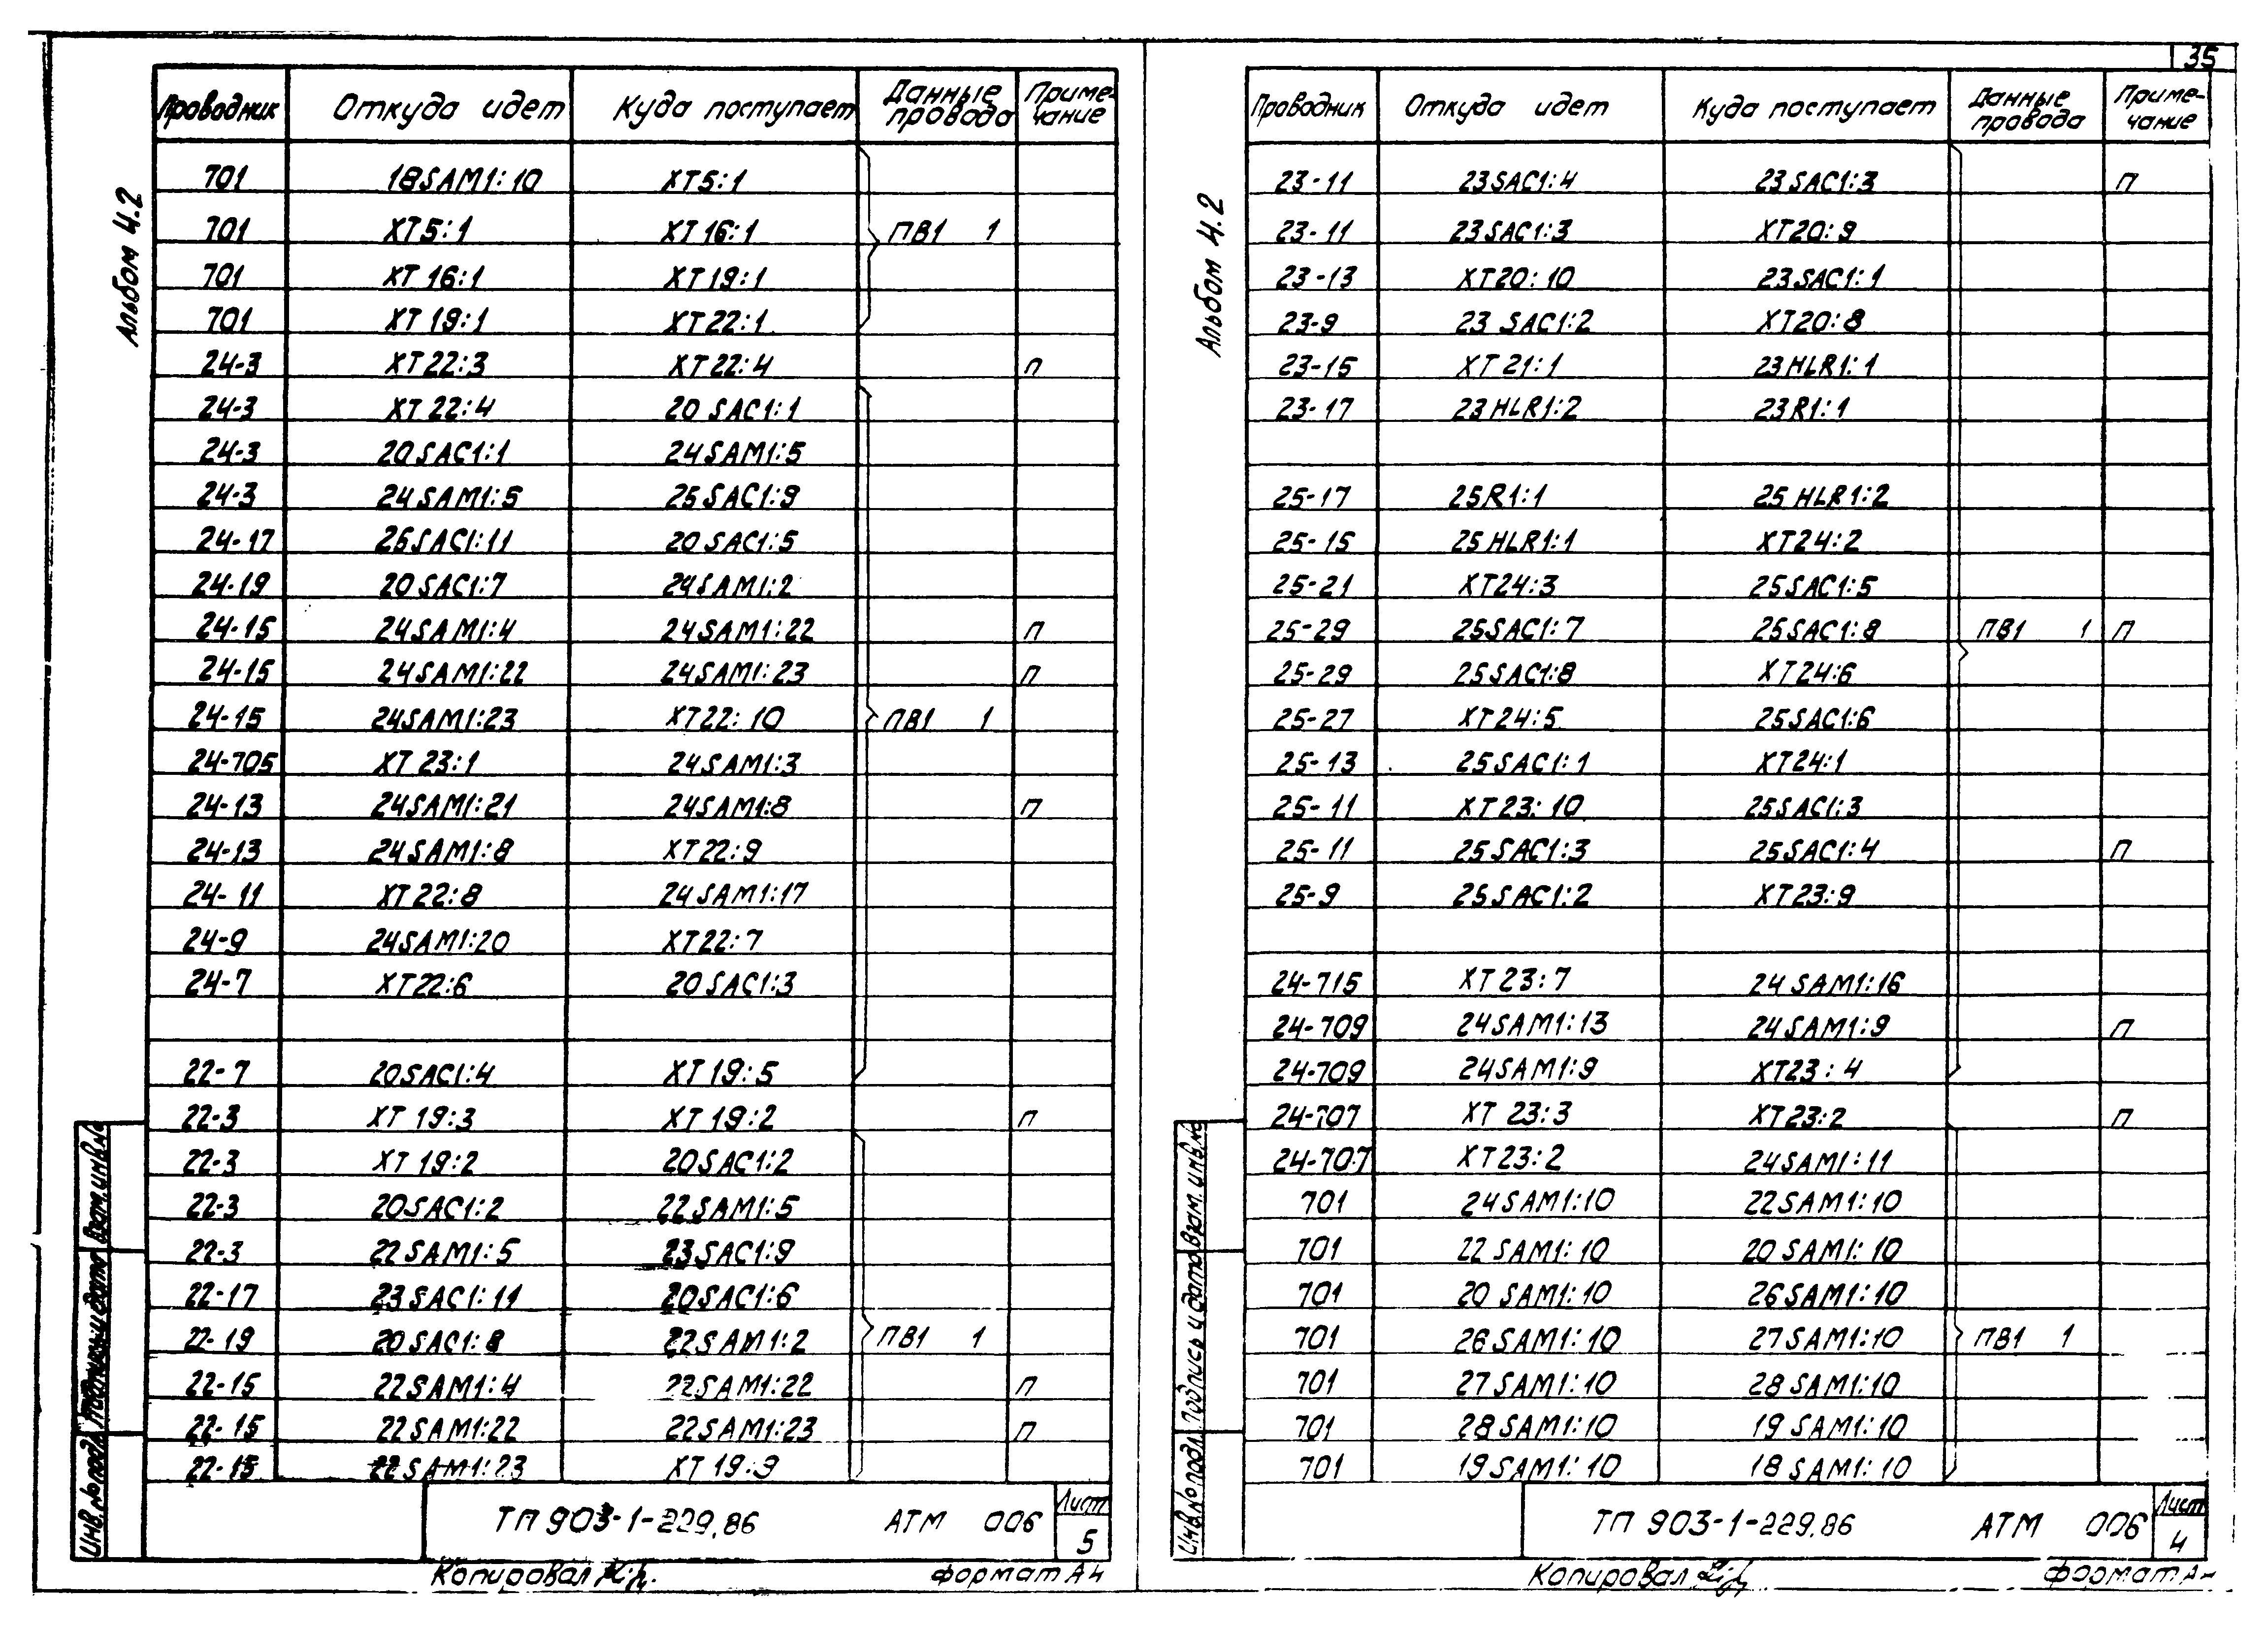 35
Альбом 4.2
Проводник Откуда идет Куда поступает Данные провода Примечание
701 18SAM1:10 XT5:1
701 XT5:1 XT16:1 ПВ1 1
701 XT16:1 XT19:1
701 XT19:1 XT22:1
24-3 XT22:3 XT22:4 П
24-3 XT22:4 20SAC1:1
24-3 20SAC1:1 24SAM1:5
24-3 24SAM1:5 25SAC1:9
24-17 25SAC1:11 20SAC1:5
24-19 20SAC1:7 24SAM1:2
24-15 24SAM1:4 24SAM1:22 П
24-15 24SAM1:22 24SAM1:23 П
24-15 24SAM1:23 XT22:10 ПВ1 1
24-705 XT23:1 24SAM1:3
24-13 24SAM1:21 24SAM1:8 П
24-13 24SAM1:8 XT22:9
24-11 XT22:8 24SAM1:17
24-9 24SAM1:20 XT22:7
24-7 XT22:6 20SAC1:3
22-7 20SAC1:4 XT19:5
22-3 XT19:3 XT19:2 П
22-3 XT19:2 20SAC1:2
22-3 20SAC1:2 22SAM1:5
22-3 22SAM1:5 23SAC1:9
22-17 23SAC1:11 20SAC1:6
22-19 20SAC1:8 22SAM1:2 ПВ1 1
22-15 22SAM1:4 22SAM1:22 П
22-15 22SAM1:22 22SAM1:23 П
22-15 22SAM1:23 XT19:9
Инв.№подл. Подпись и дата Взам.инв.№
ТП 903-1-229.86 АТМ 006 Лист 5
Копировал
формат А4
Альбом 4.2
Проводник Откуда идет Куда поступает Данные провода Примечание
23-11 23SAC1:4 23SAC1:3 П
23-11 23SAC1:3 XT20:9
23-13 XT20:10 23SAC1:1
23-9 23SAC1:2 XT20:8
23-15 XT21:1 23HLR1:1
23-17 23HLR1:2 23R1:1
25-17 25R1:1 25HLR1:2
25-15 25HLR1:1 XT24:2
25-21 XT24:3 25SAC1:5
25-29 25SAC1:7 25SAC1:8 ПВ1 1 П
25-29 25SAC1:8 XT24:6
25-27 XT24:5 25SAC1:6
25-13 25SAC1:1 XT24:1
25-11 XT23:10 25SAC1:3
25-11 25SAC1:3 25SAC1:4 П
25-9 25SAC1:2 XT23:9
24-715 XT23:7 24SAM1:16
24-709 24SAM1:13 24SAM1:9 П
24-709 24SAM1:9 XT23:4
24-707 XT23:3 XT23:2 П
24-707 XT23:2 24SAM1:11
701 24SAM1:10 22SAM1:10
701 22SAM1:10 20SAM1:10
701 20SAM1:10 26SAM1:10
701 26SAM1:10 27SAM1:10 ПВ1 1
701 27SAM1:10 28SAM1:10
701 28SAM1:10 19SAM1:10
701 19SAM1:10 18SAM1:10
Инв.№подл. Подпись и дата Взам.инв.№
ТП 903-1-229.86 АТМ 006 Лист 4
Копировал
формат А